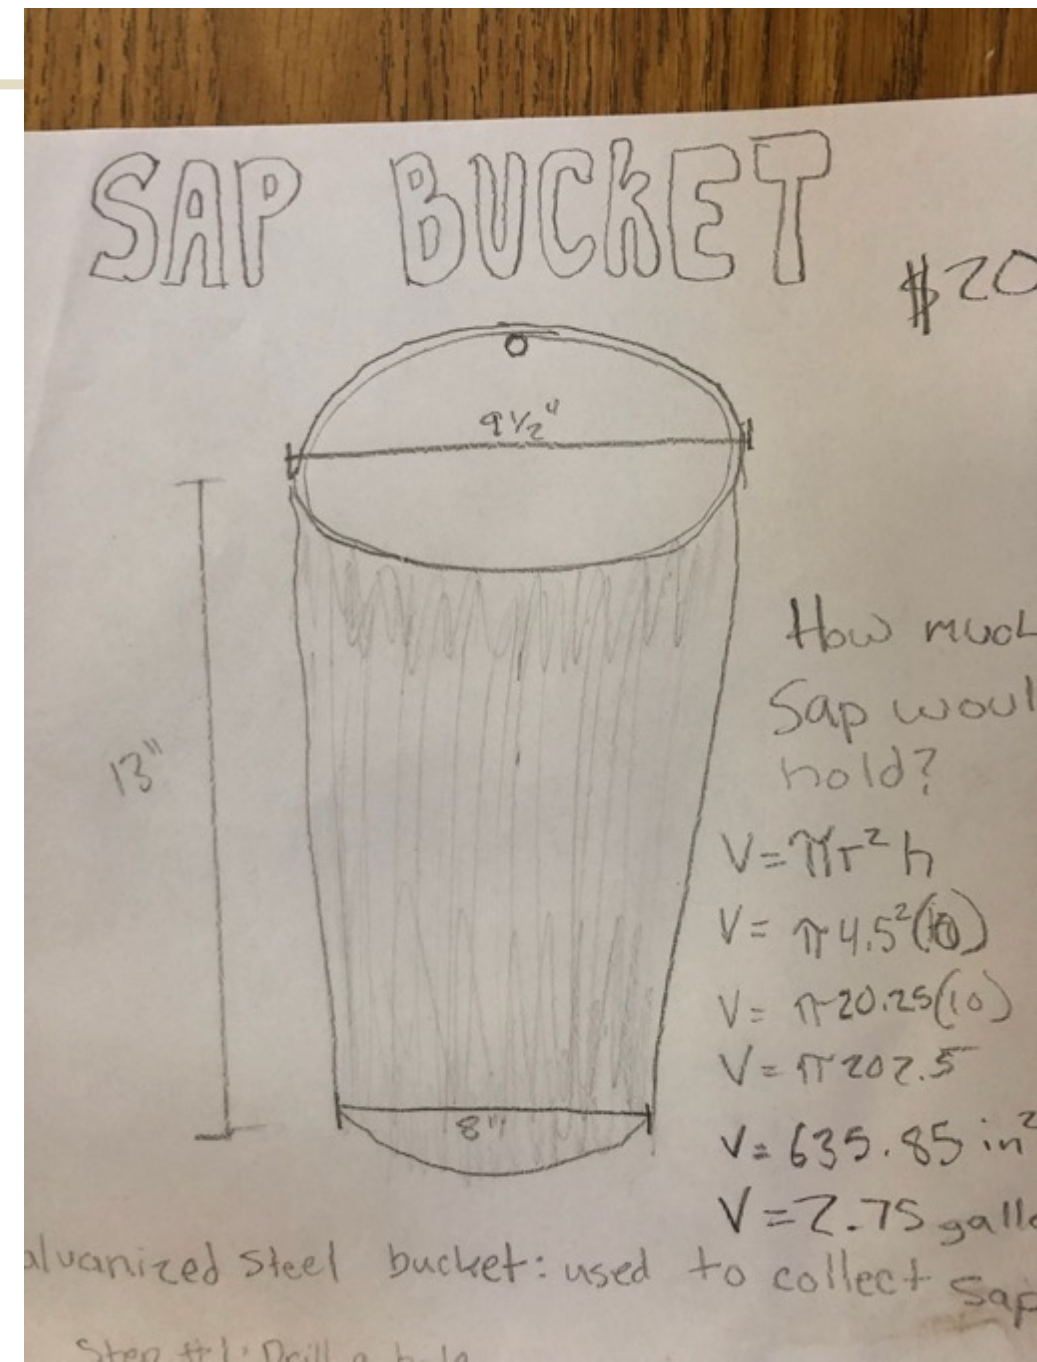 SAP BUCKET
$20
9 1/2"
13"
How much
Sap woul
hold?
V = πr² h
V = π 4.5² (10)
V = π 20.25 (10)
V = π 202.5
8"
V = 635.85 in²
V = 2.75 gallo
alvanized steel bucket: used to collect sap
Step #1: Drill a hole